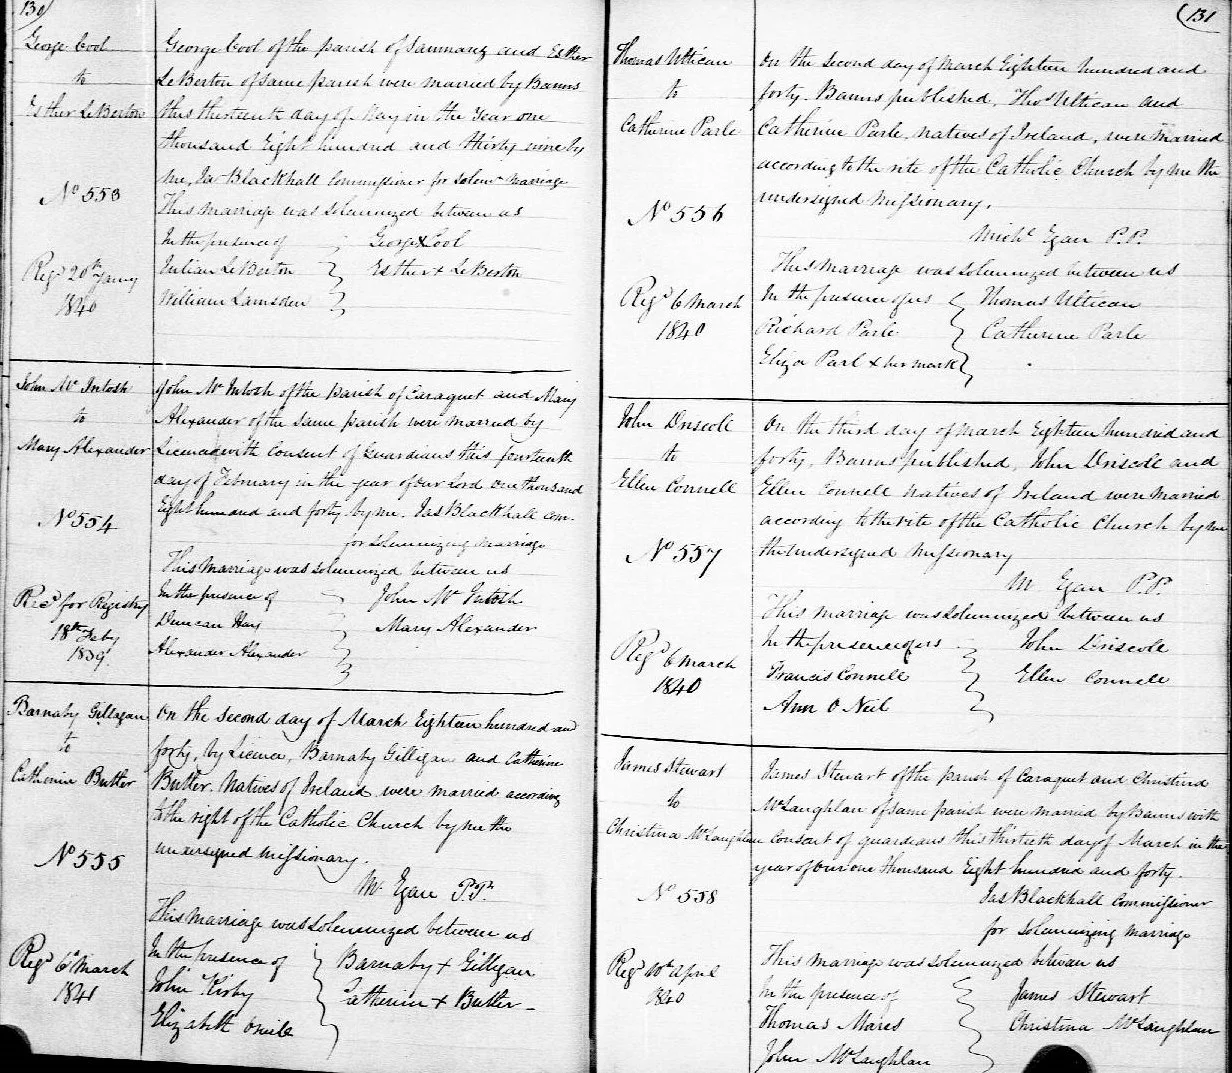 130
George Cool
to
Esther LeBerton
No 553
Regd 20th Jany
1840
George Cool of the parish of Saumarez and Esther
LeBerton of same parish were married by Banns
this thirteenth day of May in the year one
thousand Eight hundred and thirty nine by
me, Jas Blackhall Commissioner for Solemg marriage
This marriage was solemnized between us
In the presence of George X Cool
Julian LeBerton Esther + LeBerton
William Lamsden
John Mc Intosh
to
Mary Alexander
No 554
Recd for Registry
18th Feby
1839
John Mc Intosh of the Parish of Caraquet and Mary
Alexander of the same parish were married by
License with consent of Guardians this fourteenth
day of February in the year of our Lord one thousand
Eight hundred and forty by me. Jas Blackhall Com.
for solemnizing marriage
This Marriage was solemnized between us
In the presence of John Mc Intosh
Duncan Hay Mary Alexander
Alexander Alexander
Barnaby Gilligan
to
Catherin Butler
No 555
Regd 6th March
1841
On the second day of March Eighteen hundred and
forty, by Licence, Barnaby Gilligan and Catherine
Butler. Natives of Ireland were married according
to the right of the Catholic Church by me the
undersigned missionary.
M. Egan P.P.
This marriage was solemnized between us
In the presence of Barnaby + Gilligan
John Kirby Catherin + Butler
Elizabeth Oneile
131
Thomas Uttican
to
Catherine Parle
No 556
Regd 6 March
1840
On the second day of March Eighteen hundred and
forty. Banns published, Thos Uttican and
Catherine Parle, natives of Ireland, were married
according to the rite of the Catholic Church by me the
undersigned missionary.
Michl Egan P.P.
This marriage was solemnized between us
In the presence of us Thomas Uttican
Richard Parle Catherine Parle
Eliza Parl x her mark
John Driscoll
to
Ellen Connell
No 557
Regd 6 March
1840
On the third day of March Eighteen hundred and
forty, Banns published, John Driscoll and
Ellen Connell natives of Ireland were married
according to the rite of the Catholic Church by me
the undersigned missionary
M. Egan P.P.
This marriage was solemnized between us
In the presence of us John Driscole
Francis Connell Ellen Connell
Ann O Neil
James Stewart
to
Christina McLaughlan
No 558
Regd 10th April
1840
James Stewart of the parish of Caraquet and Christina
McLaughlan of same parish were married by Banns with
consent of guardians this thirtieth day of March in the
year of our one thousand Eight hundred and forty.
Jas Blackhall Commissioner
for Solemnizing marriage
This marriage was solemnized between us
In the presence of James Stewart
Thomas Mares Christina McLaughlan
John McLaughlan